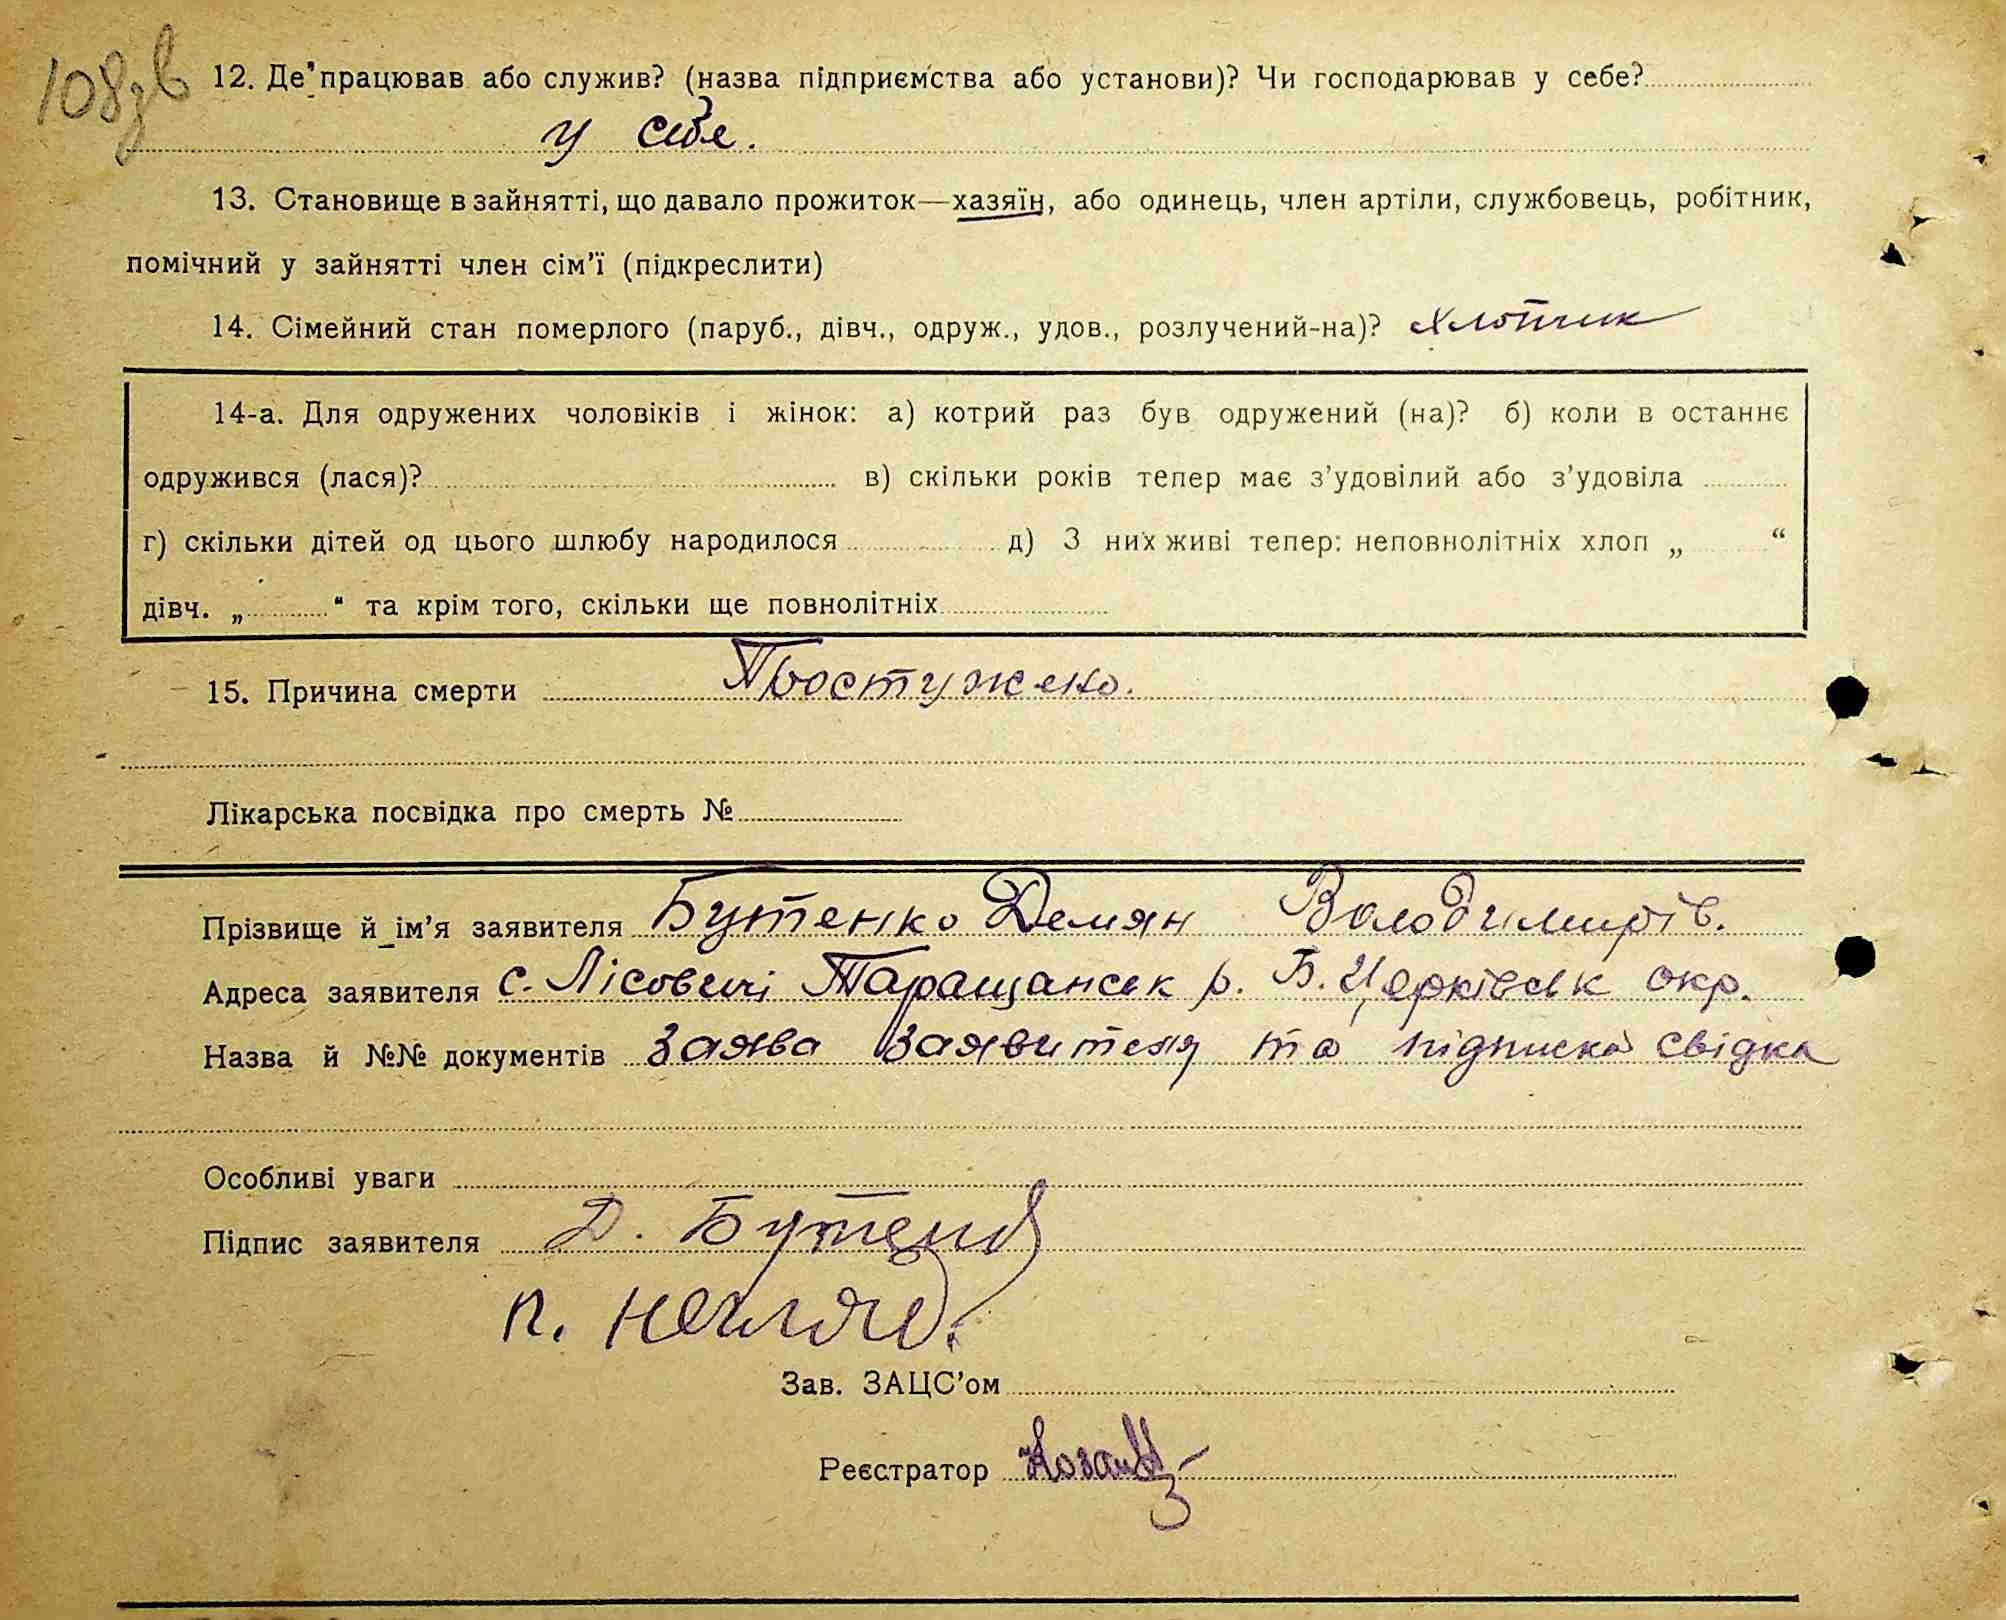 108зв
12. Де працював або служив? (назва підприємства або установи)? Чи господарював у себе?
у себе.
13. Становище в зайнятті, що давало прожиток—хазяїн, або одинець, член артіли, службовець, робітник,
помічний у зайнятті член сім'ї (підкреслити)
14. Сімейний стан померлого (паруб., дівч., одруж., удов., розлучений-на)? хлопчик
14-а. Для одружених чоловіків і жінок: а) котрий раз був одружений (на)? б) коли в останнє
одружився (лася)? в) скільки років тепер має з'удовілий або з'удовіла
г) скільки дітей од цього шлюбу народилося д) З них живі тепер: неповнолітніх хлоп „ “
дівч. „ “ та крім того, скільки ще повнолітніх
15. Причина смерти Простужено.
Лікарська посвідка про смерть №
Прізвище й ім'я заявителя Бутенко Демян Володимирів.
Адреса заявителя с. Лісовичі Таращанськ р. Б. Церківськ окр.
Назва й №№ документів заява заявителя та підписка свідка
Особливі уваги
Підпис заявителя Д. Бутенко
п.
Зав. ЗАЦС'ом
Реєстратор